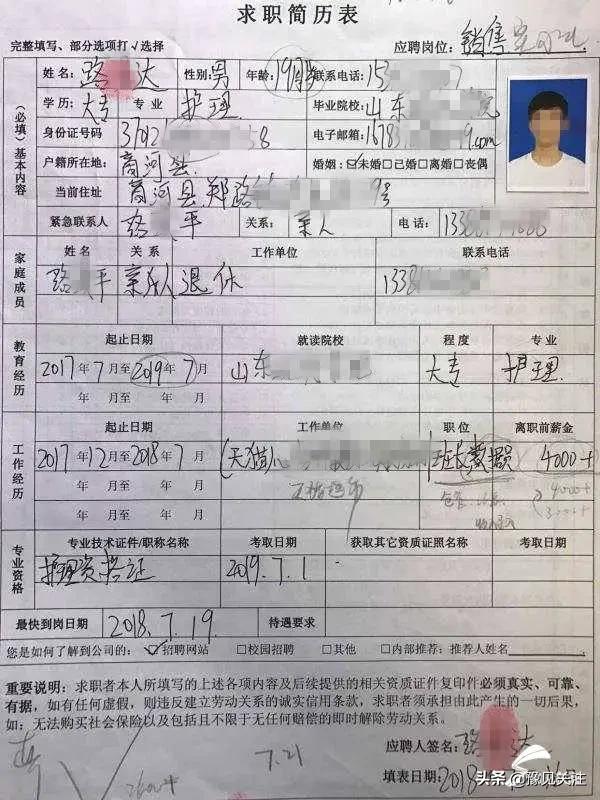 求职简历表
完整填写、部分选项打√选择 应聘岗位: 销售
姓名: 路 达 性别: 男 年龄: 19 联系电话: 15 7
学历: 大专 专业 护理 毕业院校: 山东 院
身份证号码 37021 58 电子邮箱: 1678 9.com
户籍所在地: 商河县 婚姻: ☑未婚□已婚□离婚□丧偶
当前住址 商河县郑路 号
紧急联系人 路 平 关系: 亲人 电话: 133
(必填)基本内容
姓名 关系 工作单位 联系电话
路 平 亲人 退休 1338
家庭成员
起止日期 就读院校 程度 专业
2017年7月至2019年7月 山东 大专 护理
年 月至 年 月
教育经历
起止日期 工作单位 职位 离职前薪金
2017年12月至2018年7月 (天猫 班长 数据员 4000+
年 月至 年 月 4000+
工作经历
专业技术证件/职称名称 考取日期 获取其它资质证照名称 考取日期
护理资格证 2019.7.1
专业资格
最快到岗日期 2018.7.19 待遇要求
您是如何了解到公司的: ☑招聘网站 □校园招聘 □其他 □内部推荐: 推荐人姓名
重要说明: 求职者本人所填写的上述各项内容及后续提供的相关资质证件复印件必须真实、可靠、
有据, 如有任何虚假, 则违反建立劳动关系的诚实信用条款, 求职者须承担由此产生的一切后果,
如: 无法购买社会保险以及包括且不限于无任何赔偿的即时解除劳动关系。
应聘人签名: 路 达
7.21
填表日期: 2018
头条 @豫见关注